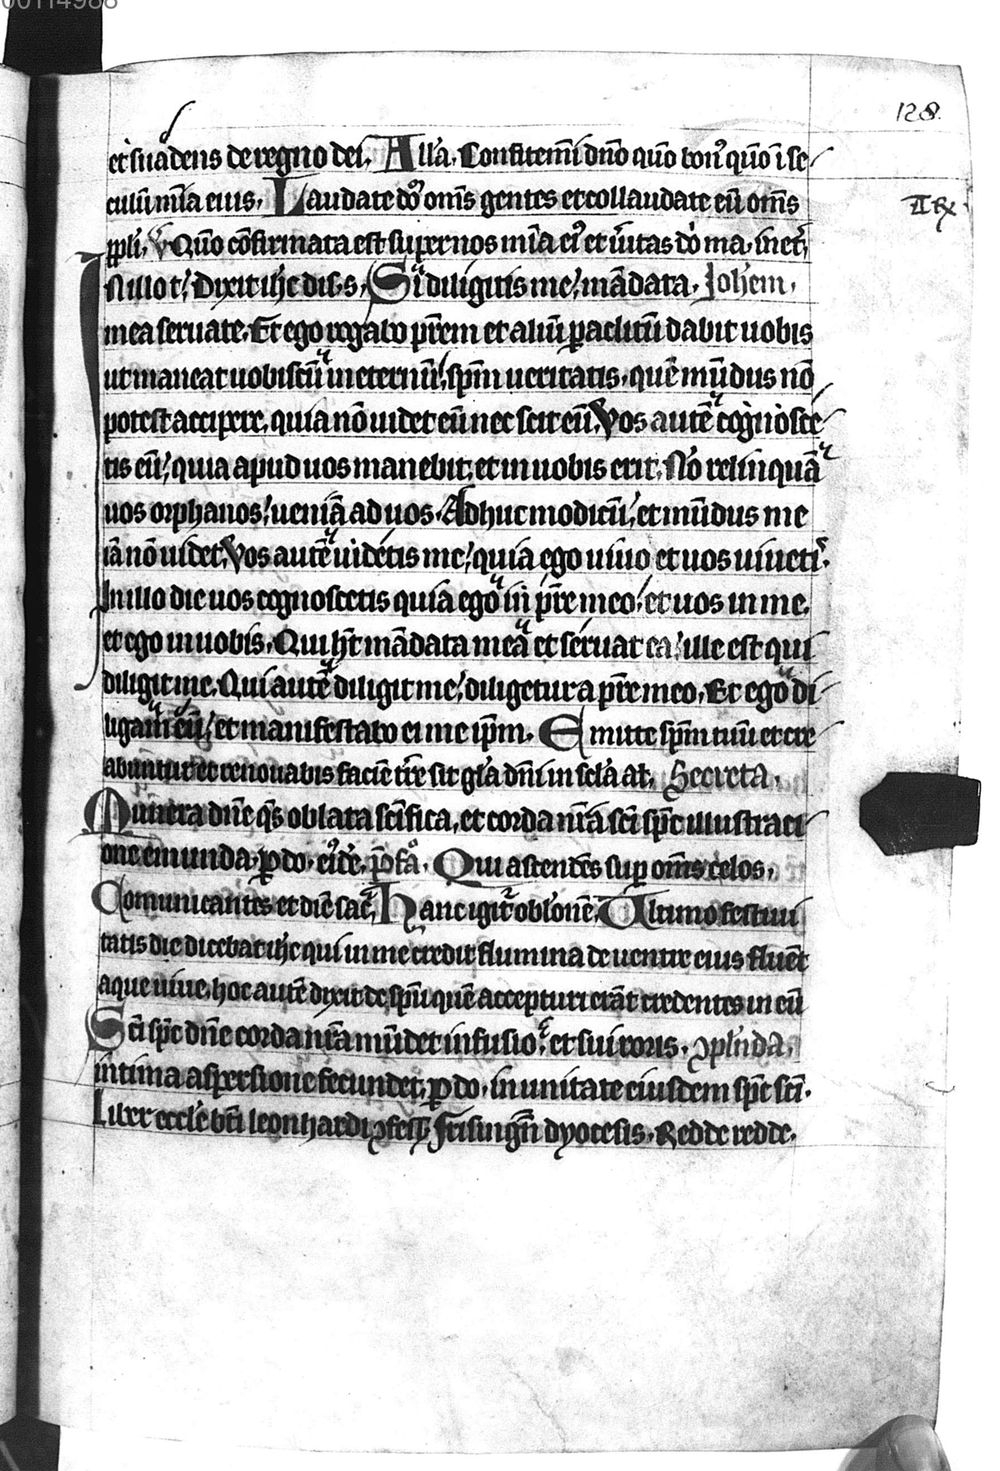 00114988
128.
et suadens de regno dei. All'a. Confitemi dno qm̄ bon' qm̄ ī se
culū mīa eius. Laudate do' om̄s gentes et collaudate eū om̄s
ppl'i. V Qm̄ cōfirmata est super nos mīa ei' et ūitas dō ma. in et'.
II Rx
In illo t'. Dixit ihc dis. s. Si diligitis me, mādata. Johem.
mea seruate. Et ego rogabo prēm et aliū paclitū dabit uobis
ut maneat uobiscū in eternū, spm̄ ueritatis, quē mūdus nō
potest accipere, quia nō uidet eū nec scit eū. Vos autē cognosce
tis eū, quia apud uos manebit, et in uobis erit. Nō relinquā
uos orphanos, ueniā ad uos. Adhuc modicū, et mūdus me
iā nō uidet. Vos autē uidetis me, quia ego uiuo et uos uiueti'.
In illo die uos cognoscetis quia ego ī pr̄e meo, et uos in me,
et ego in uobis. Qui h̄t mādata mea et seruat ea, ille est qui
diligit me. Qui autē diligit me, diligetur a pr̄e meo. Et ego di
ligam eū, et manifestabo ei me ip̄m. Emitte spm̄ tuū et cre
abuntur et renouabis faciē tr̄e sit gl'a dn̄i in scl'a al'. Secreta.
Munera dn̄e qs̄ oblata scīfica, et corda nr̄a scī spc̄ illustraci
one emunda. p do. ei'dē. p̄fa°. Qui ascendēs sup om̄s celos.
Comunicantes et diē sac'. Hanc igit' obl'onē. Ultimo festiui
tatis die dicebat ihc qui in me credit flumina de uentre eius fluēt
aque uiue, hoc autē dixit de spū quē accepturi erāt credentes in eū
Scī spc̄ dn̄e corda nr̄a mūdet infusio, et sui roris. ɔpl'nda.
intima aspersione fecundet, p do. in unitate eiusdem spc̄ scī.
Liber eccl'e btī leonhardi ɔfess' frisingn̄ dyocesis. Redde redde.